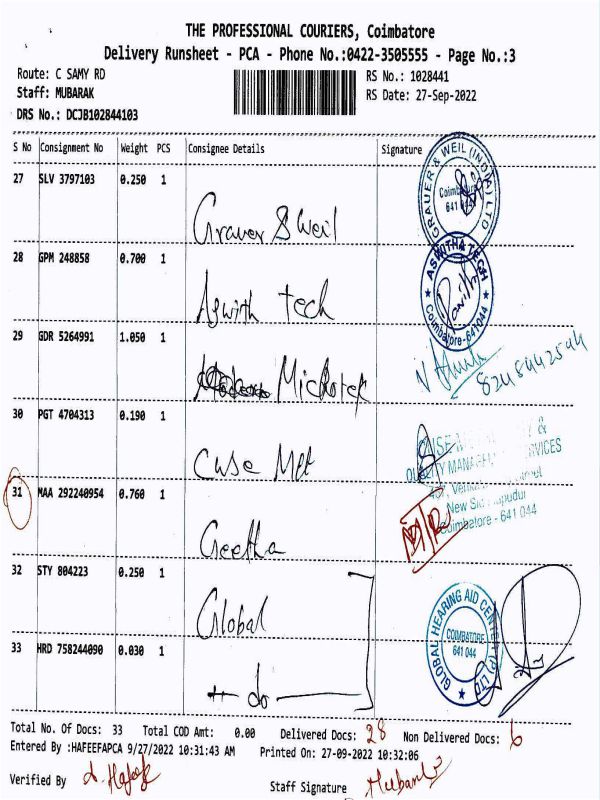 THE PROFESSIONAL COURIERS, Coimbatore
Delivery Runsheet - PCA - Phone No.:0422-3505555 - Page No.:3
Route: C SAMY RD RS No.: 1028441
Staff: MUBARAK RS Date: 27-Sep-2022
DRS No.: DCJB102844103
S No Consignment No Weight PCS Consignee Details Signature
27 SLV 3797103 0.250 1
Grauer & Weil
GRAUER & WEIL (INDIA) LTD
Coimbatore
641 044
28 GPM 248858 0.700 1
Aswith tech
ASWITHA TECH
Coimbatore-641044
29 GDR 5264991 1.050 1
Microtek
8248942594
30 PGT 4704313 0.190 1
Cuse Met
&
QUALITY SERVICES
New
Coimbatore - 641 044
31 MAA 292240954 0.760 1
Geetha
32 STY 804223 0.250 1
Global
GLOBAL HEARING AID CENTRE (P) LTD
COIMBATORE
641 044
33 HRD 758244090 0.030 1
do
Total No. Of Docs: 33 Total COD Amt: 0.00 Delivered Docs: 28 Non Delivered Docs: 6
Entered By :HAFEEFAPCA 9/27/2022 10:31:43 AM Printed On: 27-09-2022 10:32:06
Verified By Staff Signature